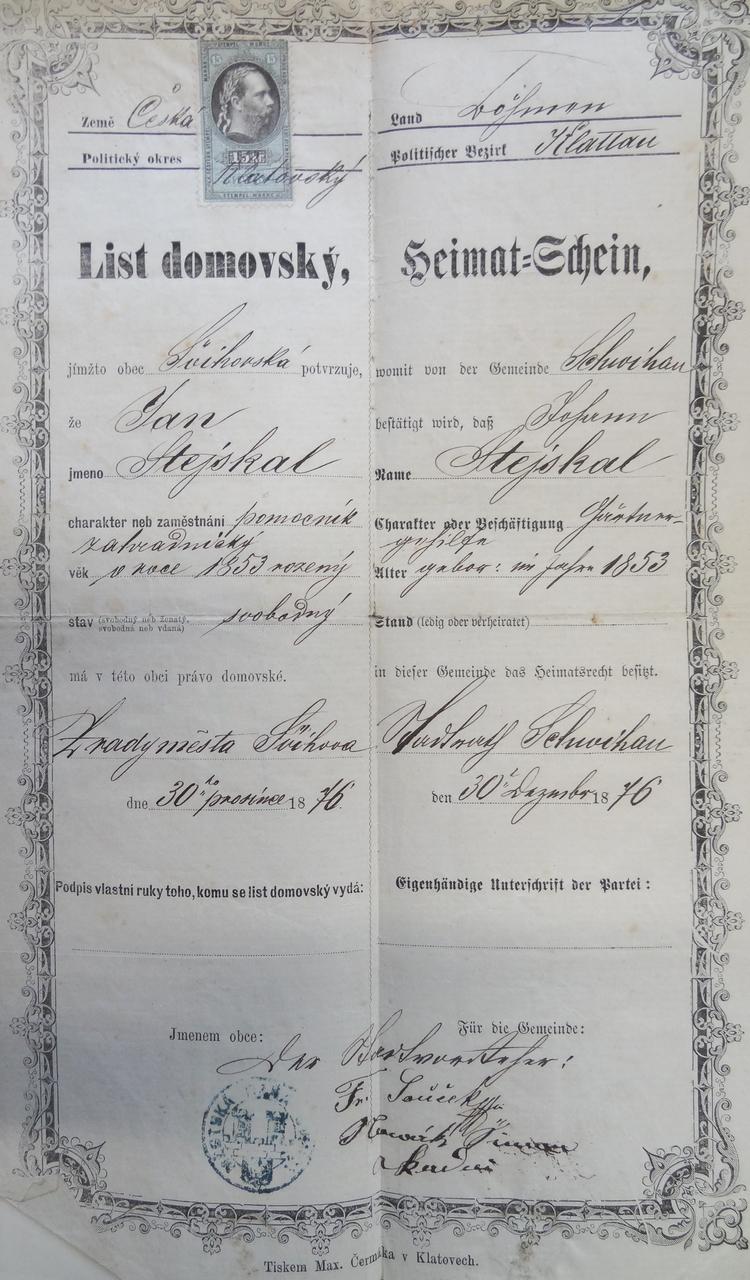 Země Česká
Politický okres Klatovský
15
15
STEMPEL MARKE
List domovský,
jímžto obec Švihovská potvrzuje,
že Jan
jmeno Stejskal
charakter neb zaměstnání pomocník
zahradnický
věk v roce 1853 rozený
stav (svobodný neb ženatý, svobodná neb vdaná) svobodný
má v této obci právo domovské.
Z rady města Švihova
dne 30ho prosince 1876.
Podpis vlastní ruky toho, komu se list domovský vydá:
Jmenem obce:
Land Böhmen
Politischer Bezirk Klattau
Heimat-Schein,
womit von der Gemeinde Schwihau
bestätigt wird, daß Johann
Name Stejskal
Charakter oder Beschäftigung Gärtner-
gehilfe
Alter gebor: im Jahre 1853
Stand (ledig oder verheiratet)
in dieser Gemeinde das Heimatsrecht besitzt.
Stadtrath Schwihau
den 30 Dezember 1876
Eigenhändige Unterschrift der Partei:
Für die Gemeinde:
Der Stadtvorsteher:
Fr. Souček
Nowák
Tiskem Max. Čermáka v Klatovech.